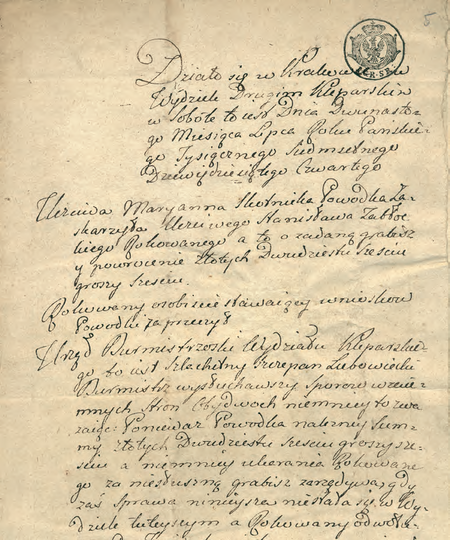 5
Działo się w Krakowie w
Wydziele Drugim Kleparskim
w Sobotę to iest Dnia Dwunasto-
go Miesiąca Lipca Roku Pańskie-
go Tysiącznego Siedmsetnego
Dziewięćdziesiątego Czwartego
Uczciwa Maryanna Skotnicka Powodka Za-
skarżyła Uczciwego Stanisława Zabłoc-
kiego Pokowanego a to o zadaną grabież
y powrocenie Złotych Dwudziestu Sześciu
groszy Sześciu.
Pokowany osobiscie stawaiący wnioskow
Powodki zaprzeczył
Urząd Burmistrzoski Wydziału Kleparskie-
go to iest Szlachetny Szczepan Lubowiecki
Burmistrz wysłuchawszy Sporow wzaie-
mnych Stron Obydwoch niemniey to zwa
zaiąc: Ponieważ Powodka należney Sum-
my złotych Dwudziestu Sześciu groszy sze-
ściu a niemniey ukarania Pokowane
go za niesłuszną grabież żąda gdy
zaś Sprawa ninieysza niestała się w Wy
dziele tuteyszym a Pokowany odwoła-